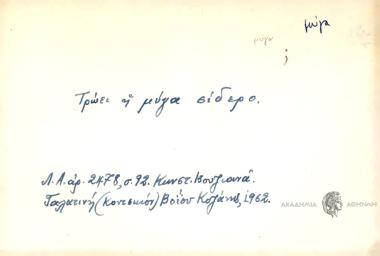 μύγα
μυγα
;
Τρώει ἡ μύγα σίδερο.
Λ.Α. ἀρ. 2478, σ. 92. Κωνστ. Βουζιανᾶ.
Γαλατινή (Κοντσικόν) Βοΐου Κοζάνης, 1962.
ΑΚΑΔΗΜΙΑ ΑΘΗΝΩΝ